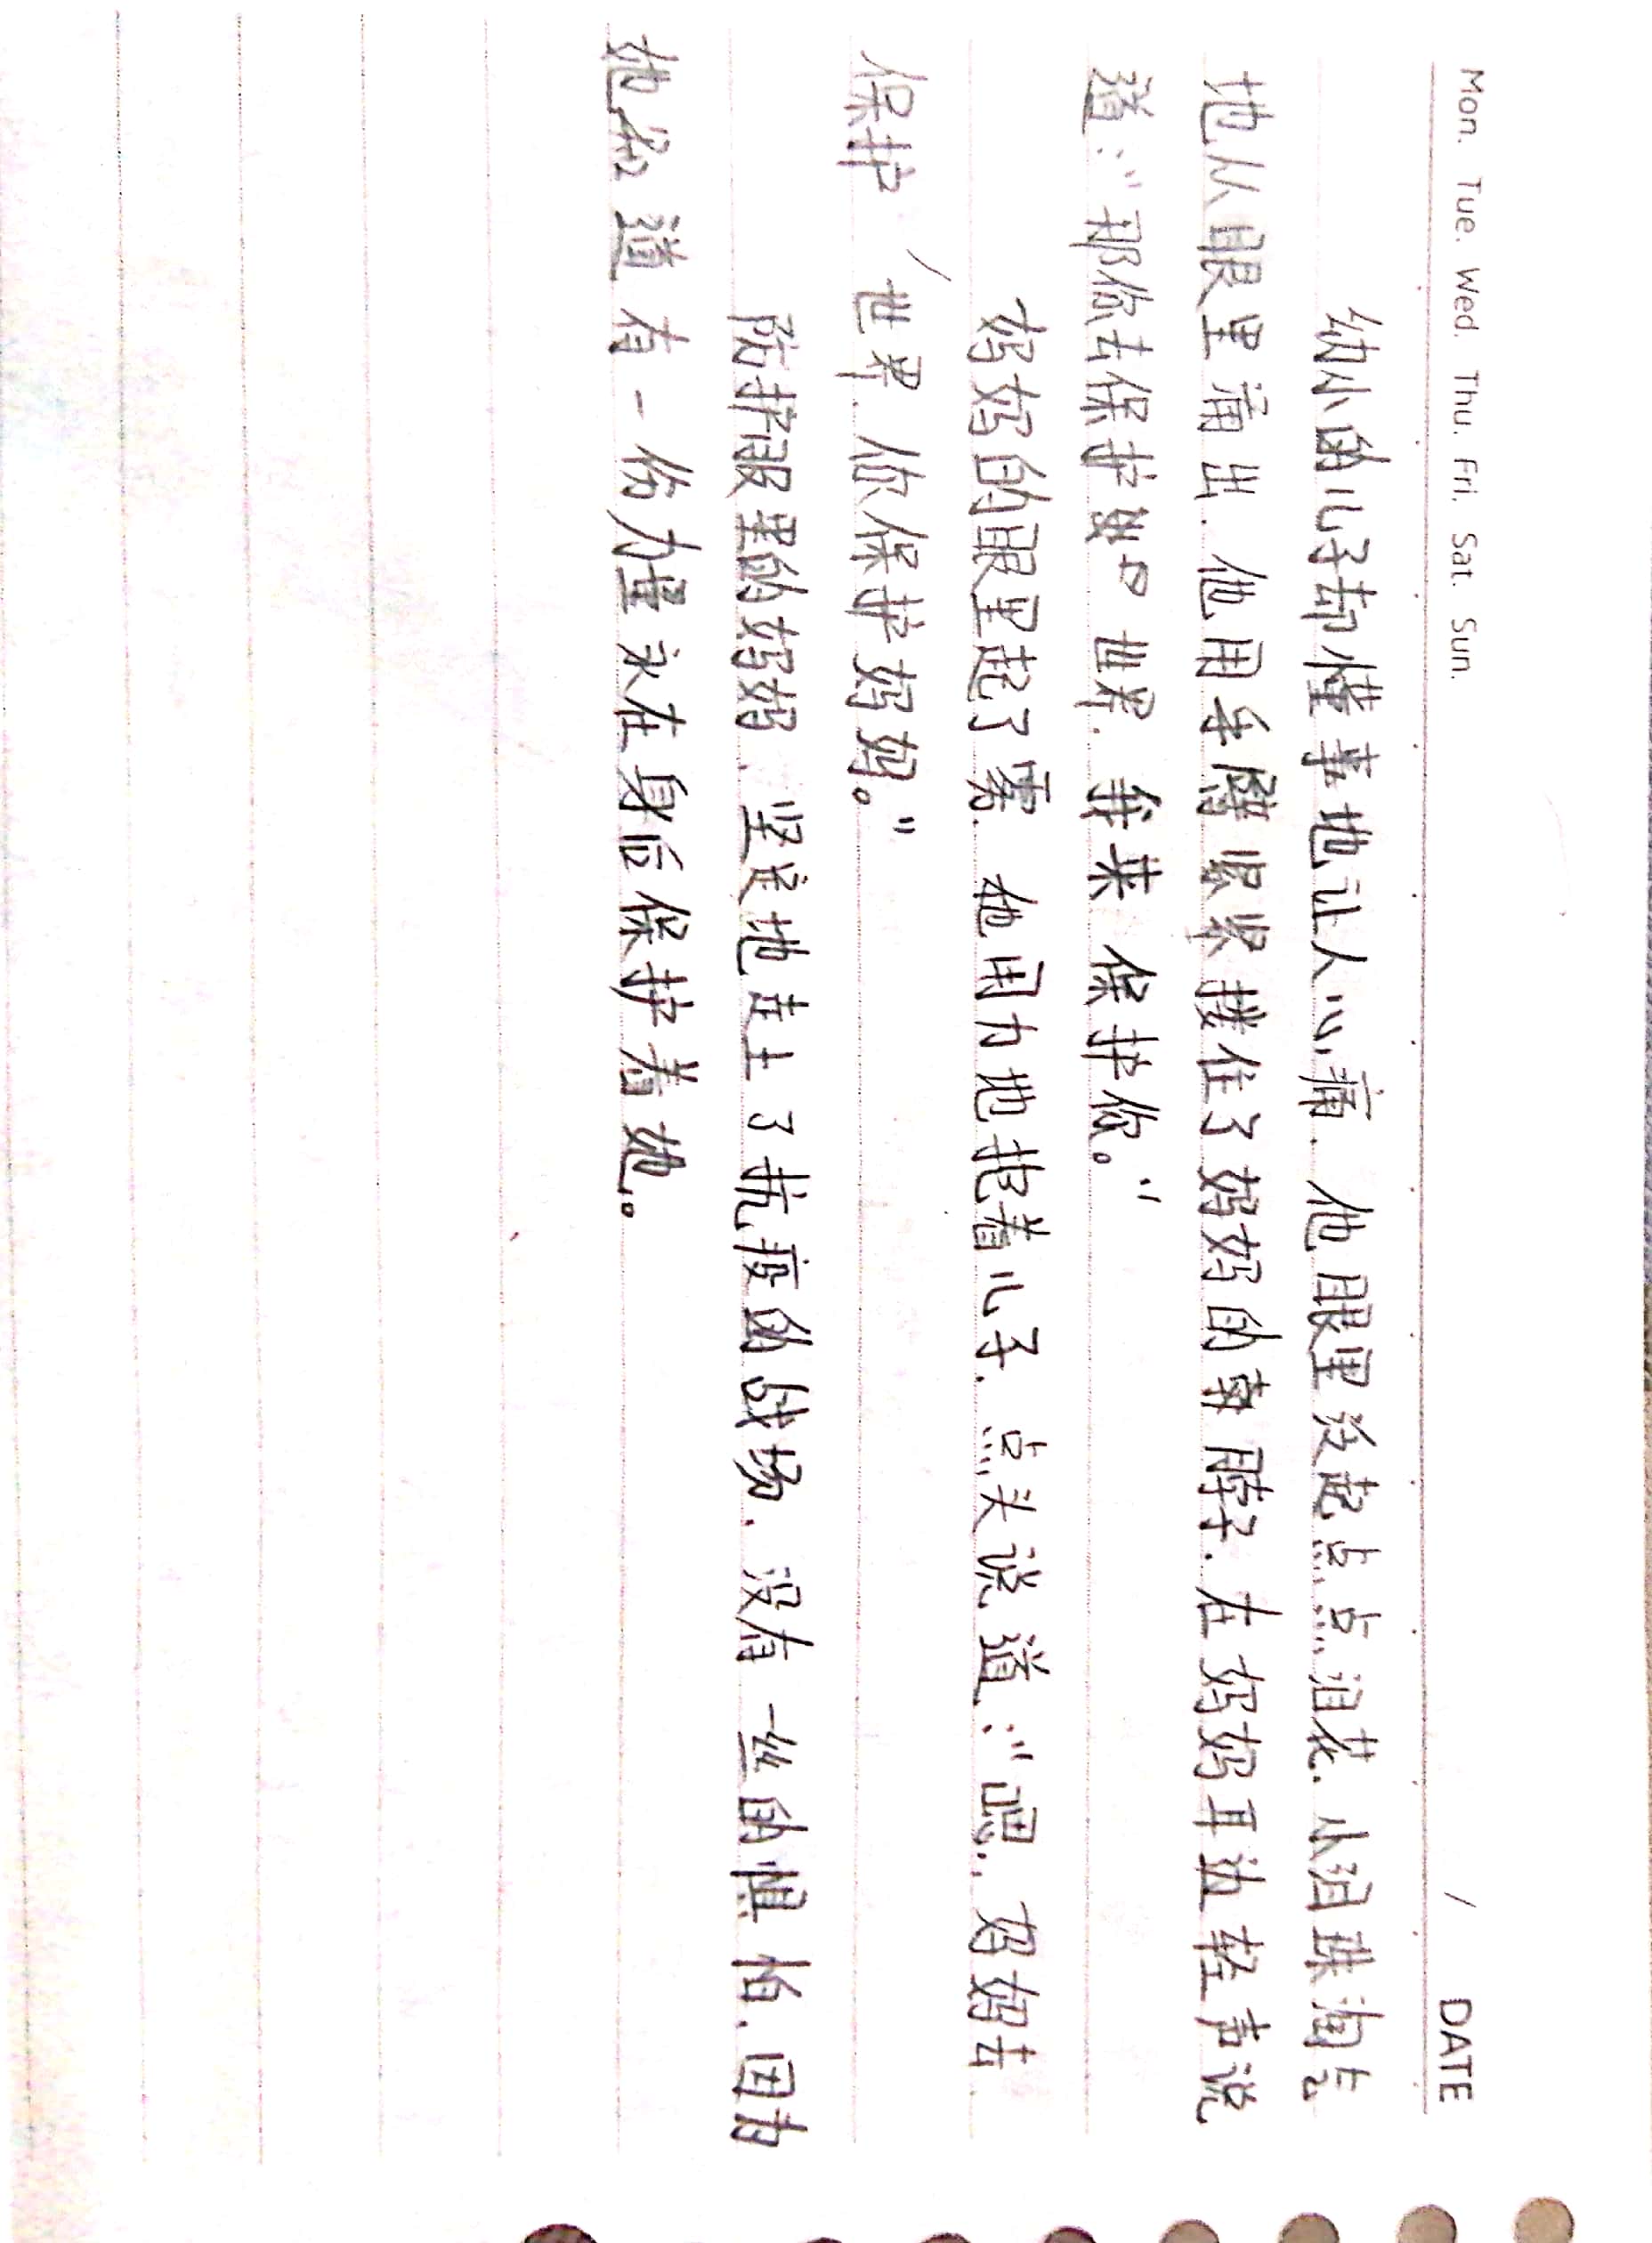 Mon. Tue. Wed. Thu. Fri. Sat. Sun. / DATE
幼小的儿子却懂事地让人心痛. 他眼里泛起点点泪花. 小泪珠淘气
地从眼里涌出. 他用手臂紧紧搂住了妈妈的脖子. 在妈妈耳边轻声说
道:“那你去保护 世界. 我来保护你。”
妈妈的眼里起了雾. 她用力地抱着儿子. 点头说道:“嗯.. 妈妈去
保护 世界. 你保护妈妈。”
防护服里的妈妈. 坚定地走上了抗疫的战场. 没有一丝的惧怕. 因为
她知道有一份力量永在身后保护着她.。